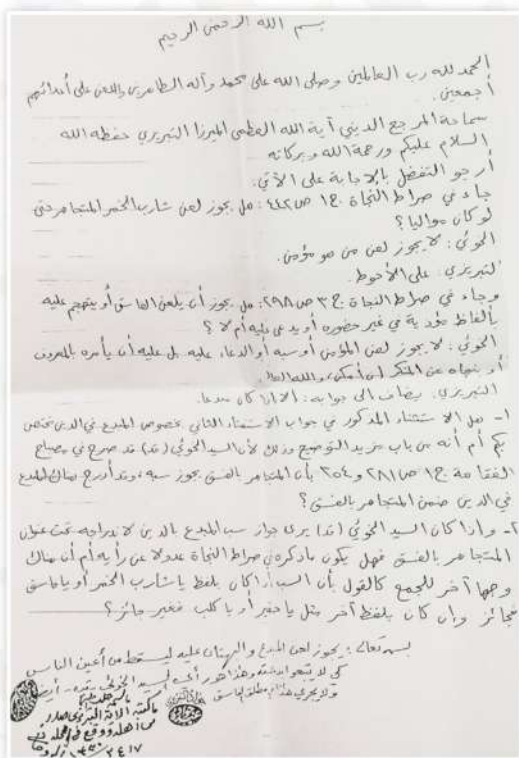 بسم الله الرحمن الرحيم
الحمد لله رب العالمين وصلى الله على محمد وآله الطاهرين واللعن على أعدائهم
أجمعين.
سماحة المرجع الديني آية الله العظمى الميرزا التبريزي حفظه الله
السلام عليكم ورحمة الله وبركاته
أرجو التفضل بالإجابة على الآتي:
جاء في صراط النجاة ج١ ص٤٤٢: هل يجوز لعن شارب الخمر المتجاهر حتى
لو كان مواليا؟
الخوئي: لا يجوز لعن من هو مؤمن.
التبريزي: على الأحوط.
وجاء في صراط النجاة ج٣ ص٢٩٨: هل يجوز أن يلعن الفاسق أو يتهجم عليه
بألفاظ مؤذية في غير حضوره أو يدعى عليه أم لا؟
الخوئي: لا يجوز لعن المؤمن أو سبه أو الدعاء عليه بل عليه أن يأمره بالمعروف
أو ينهاه عن المنكر إن أمكن، والله العالم.
التبريزي: يضاف إلى جوابه: إلا إذا كان مبدعا.
١- هل الاستثناء المذكور في جواب الاستفتاء الثاني بخصوص المبدع في الدين مختص
بكم أم أنه من باب مزيد التوضيح وذلك لأن السيد الخوئي (قد) قد صرح في مصباح
الفقاهة ج١ ص٢٨١ و ٣٥٤ بأن المتجاهر بالفسق يجوز سبه، وقد أدرج هناك المبدع
في الدين ضمن المتجاهر بالفسق؟
٢- وإذا كان السيد الخوئي (قد) يرى جواز سب المبدع بالدين لاندراجه تحت عنوان
المتجاهر بالفسق فهل يكون ما ذكره في صراط النجاة عدولا عن رأيه أم أن هناك
وجها آخر للجمع كالقول بأن السب إذا كان بلفظ يا شارب الخمر أو يا فاسق
فجائز وإن كان بلفظ آخر مثل يا حقير أو يا كلب فغير جائز؟
بسمه تعالى: يجوز لعن المبدع والبهتان عليه ليسقط من أعين الناس
كي لا يتبعوا بدعته وهذا هو رأي السيد الخوئي قدس سره أيضا
ولا يجري هذا في مطلق الفاسق